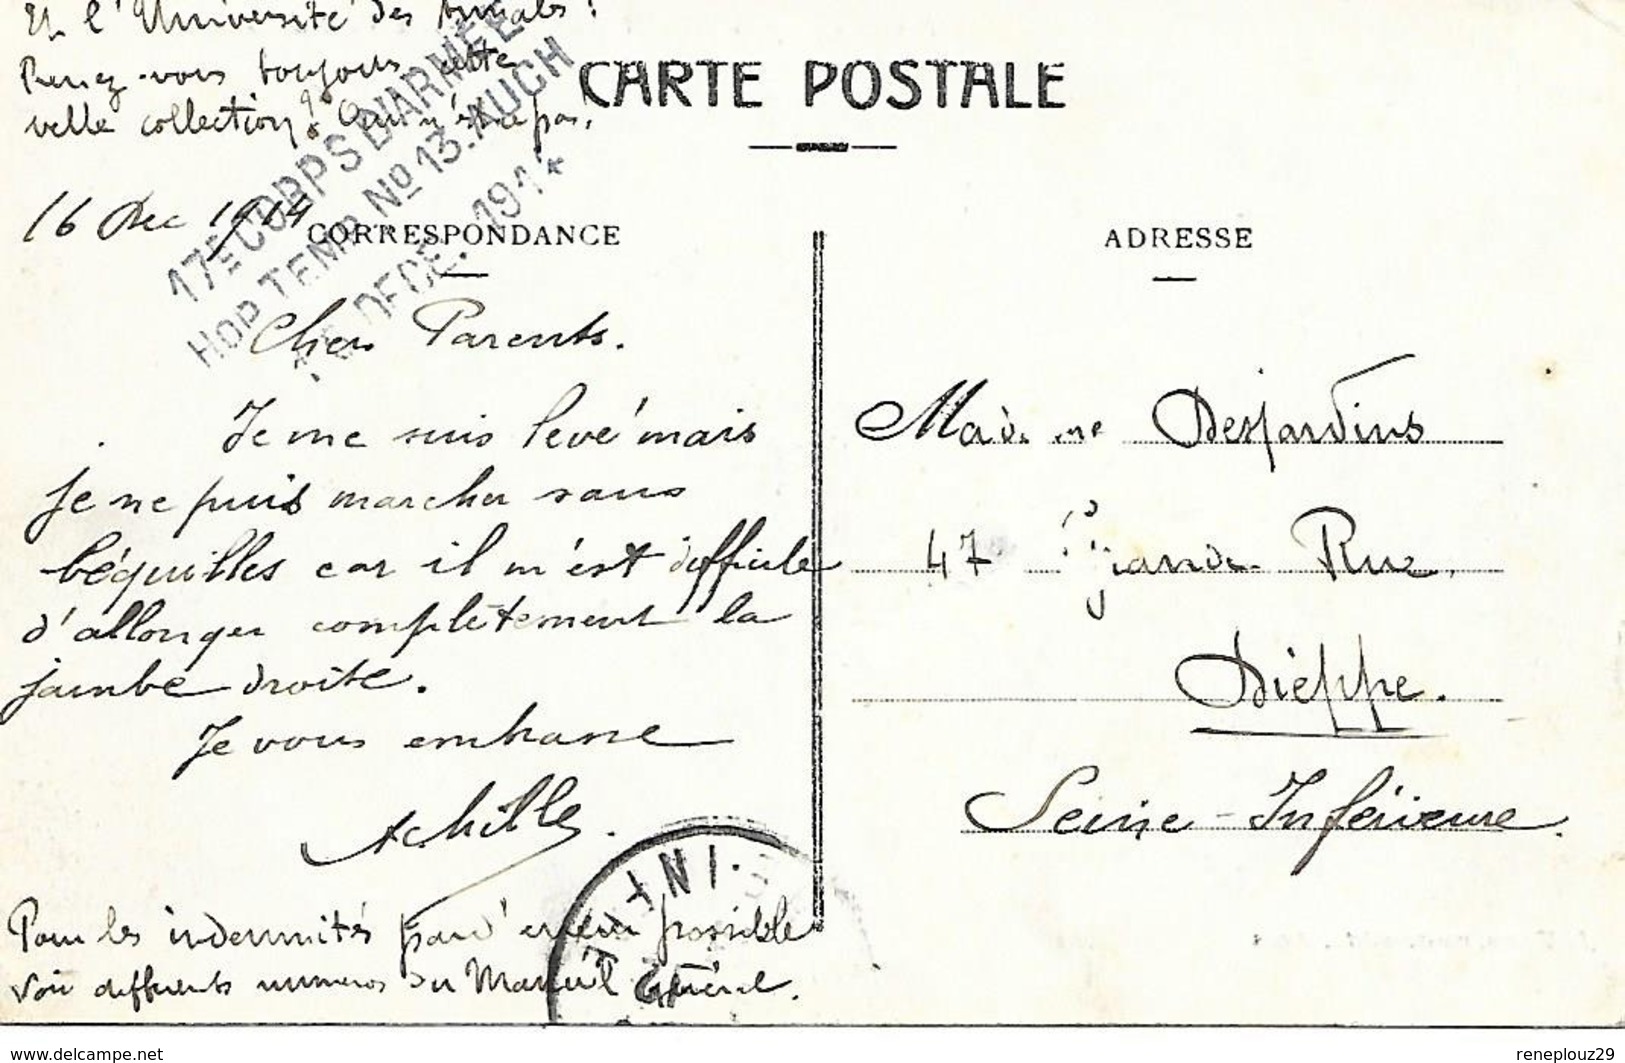 Et l'Université des Annales !
Prenez-vous toujours cette
velle collection ? Oui n'est ce pas,
CARTE POSTALE
17e CORPS D'ARMÉE
HOP. TEMP. No 13. AUCH
DECE. 191
16 Dec 1914
CORRESPONDANCE
ADRESSE
Chers Parents.
Je me suis levé mais
je ne puis marcher sans
béquilles car il m'est difficile
d'allonger complètement la
jambe droite.
Je vous embrasse
Achille.
Pour les indemnités pas d'erreur possible
Voir differents numeros du Manuel Général.
Madame Desjardins
47 Grande Rue.
Dieppe.
Seine-Inférieure.
www.delcampe.net
reneplouz29